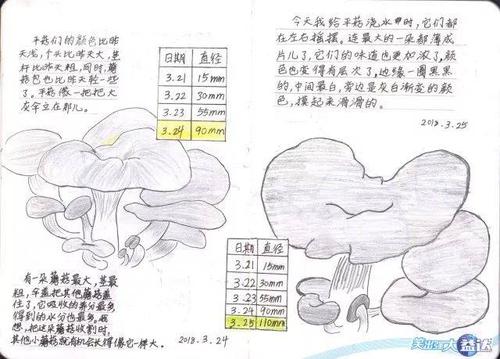 平菇们的颜色比昨
天浅,个头比昨天大,茎
杆比昨天粗,同时,蘑
菇包也比昨天轻一些
了。平菇像一把把大
灰伞立在那儿。
日期 直径
3.21 15mm
3.22 30mm
3.23 55mm
3.24 90mm
有一朵蘑菇最大,茎最
粗,伞盖把其他蘑菇盖
住了,它吸收的养分最多,
得到的水分也最多,我
想,把这朵蘑菇收割时,
其他小蘑菇就有机会长得像它一样大。
2018.3.24
今天我给平菇浇水时,它们都
在左右摇摆,连最大的一朵都薄成
片儿了,它们的味道也更加浓了,颜
色也变得有层次了,边缘一圈黑黑
的,中间最白,旁边是灰白渐变的颜
色,摸起来滑滑的。
2018.3.25
日期 直径
3.21 15mm
3.22 30mm
3.23 55mm
3.24 90mm
3.25 110mm
大益达